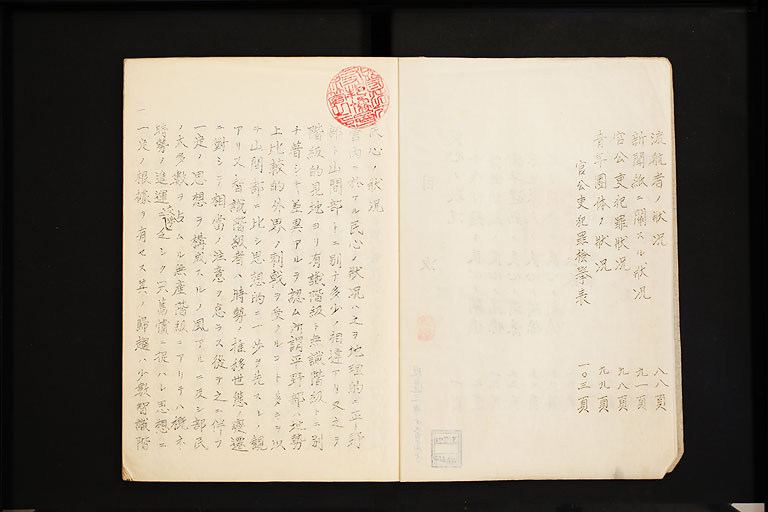 流賊者ノ狀況 八八頁
新聞紙ニ關スル狀況 九一頁
官公吏犯罪狀況 九八頁
青年團体ノ狀況 九九頁
官公吏犯罪檢擧表 一〇三頁
民心ノ狀況
管內ニ於ケル民心ノ狀況ハ之ヲ地理的ニ平野
部ト山間部トニ別チ多少ノ相違アリ又之ヲ
階級的見地ヨリ有識階級ト無識階級トニ別
チ著シキ差異アルヲ認ム所謂平野部ハ地勢
上比較的外界ノ刺戟ヲ受クルコト多キヲ以
テ山間部ニ比シ思想的ニ一步ヲ先スルノ觀
アリ又智識階級者ハ時勢ノ推移世態ノ變遷
ニ對シテ相當ノ注意ヲ怠ラス從テ之ニ伴フ
一定ノ思想ヲ構成スルノ風アルニ反シ部民
ノ大多數ヲ占ムル無產階級ニアリテハ機ネ
時勢ノ進運ニ乏シク只舊慣ニ從ハレ思想ニ
一定ノ根據ヲ有セス其ノ歸趨ハ少數智識階